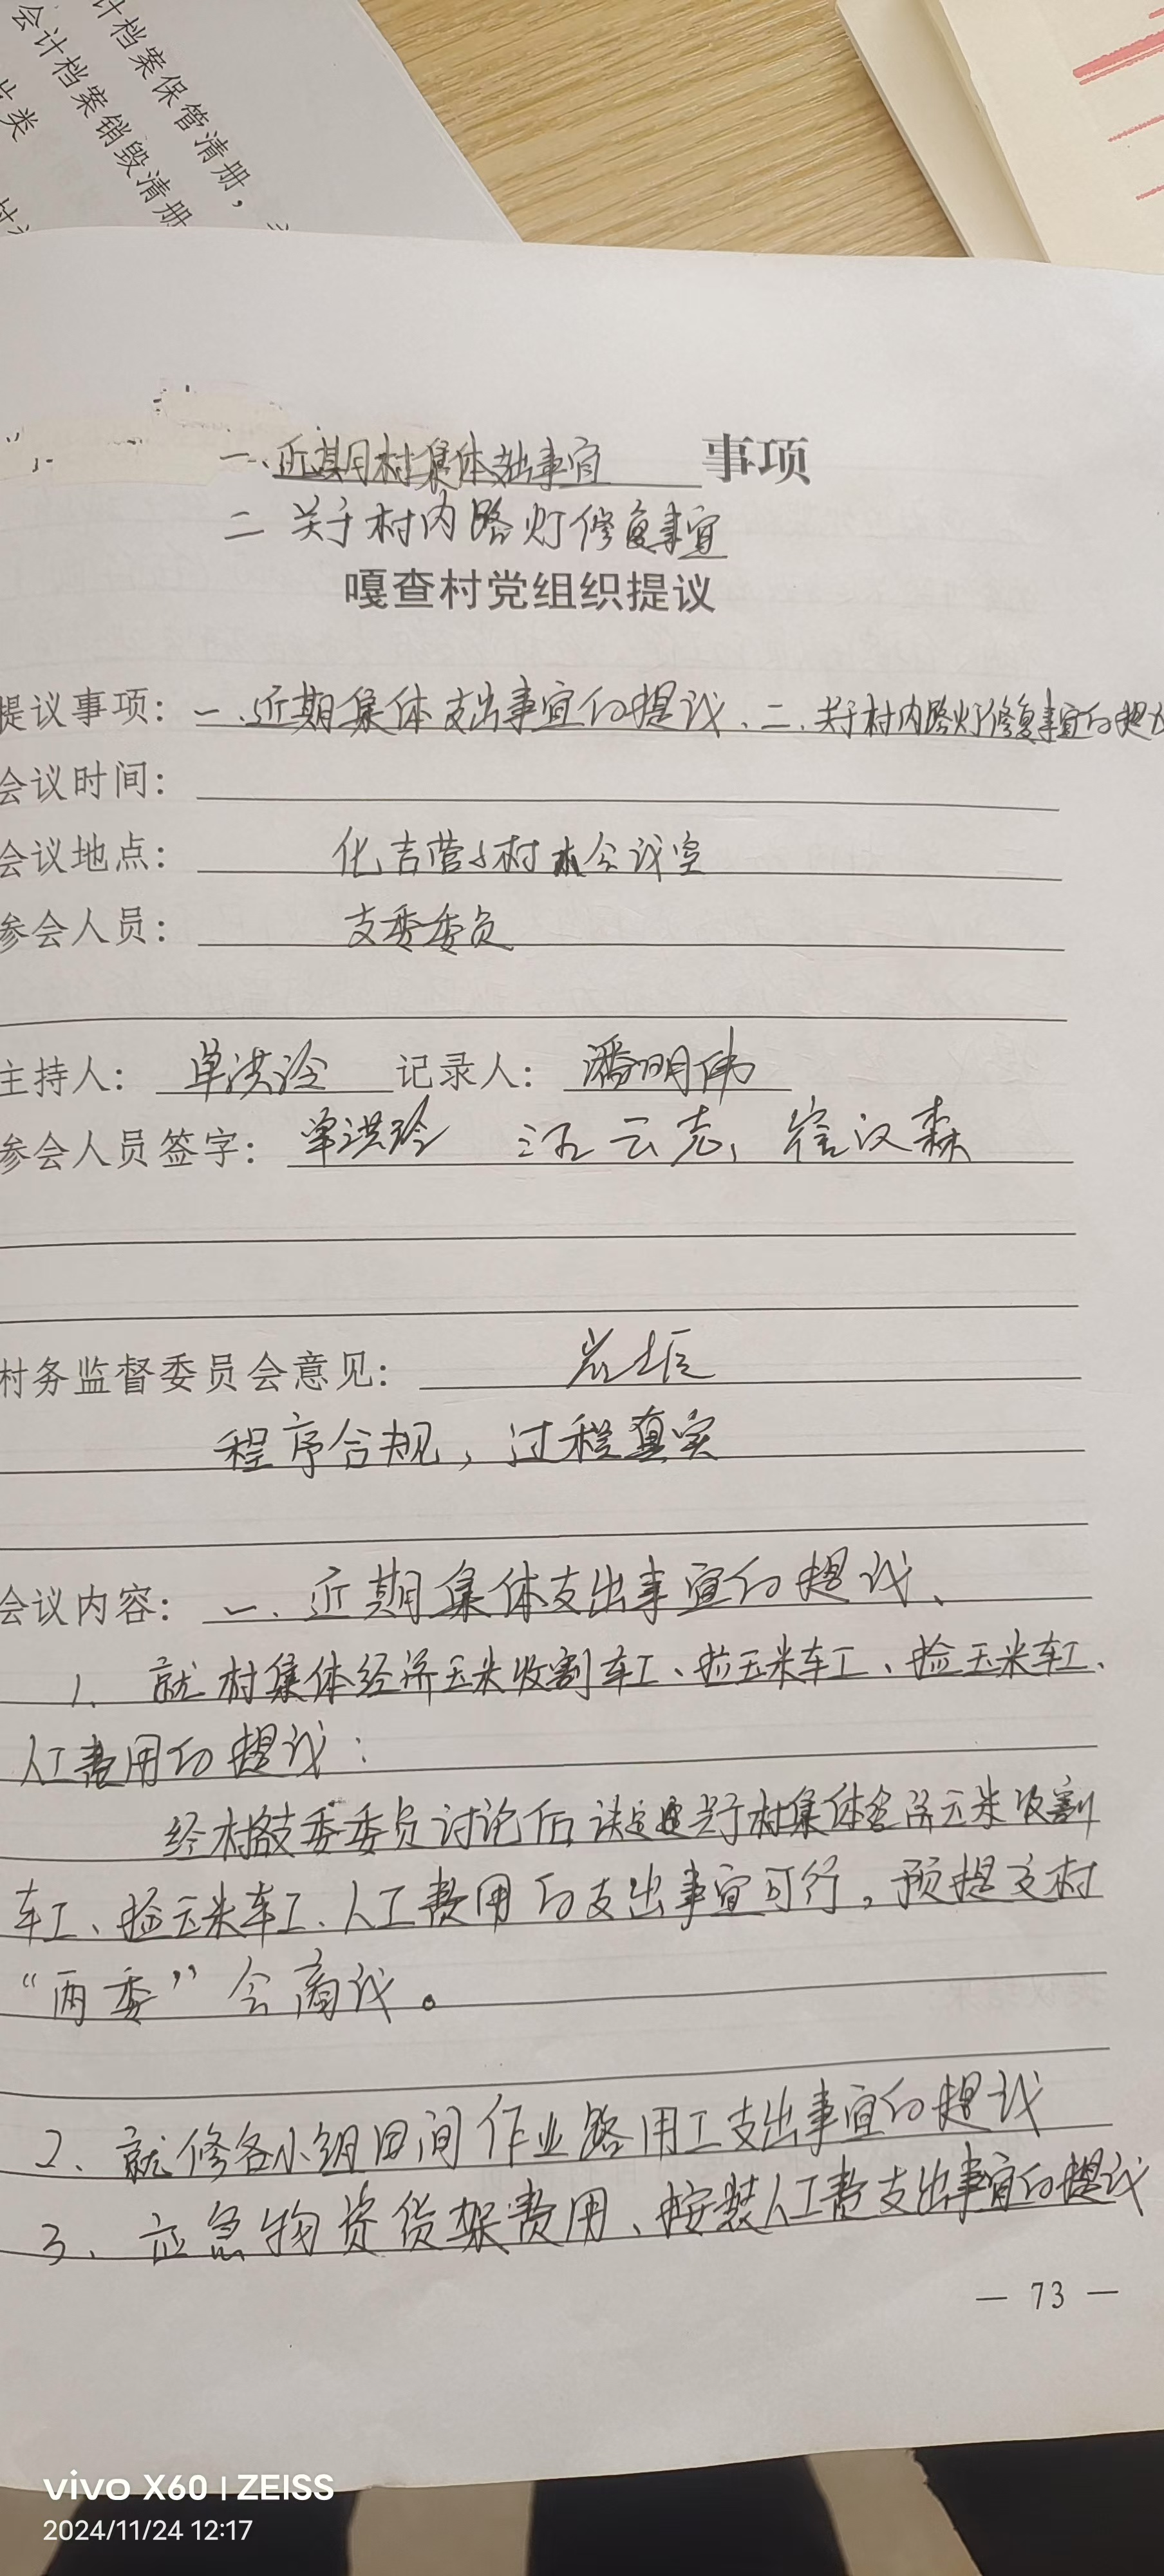 计档案保管清册,
会计档案销毁清册
类
村
一、近期村集体支出事宜 事项
二 关于村内路灯修复事宜
嘎查村党组织提议
提议事项: 一、近期集体支出事宜的提议、二、关于村内路灯修复事宜的提议
会议时间:
会议地点: 化吉营小村 会议室
参会人员: 支委委员
主持人: 单洪玲 记录人: 潘明伟
参会人员签字: 单洪玲 汪云志、 汉森
村务监督委员会意见:
程序合规,过程真实
会议内容: 一、近期集体支出事宜的提议、
1、就村集体经济玉米收割车工、拉玉米车工、捡玉米车工、
人工费用的提议:
经村支委委员讨论后,决定关于村集体经济玉米收割
车工、捡玉米车工、人工费用的支出事宜可行,预提交村
“两委”会商议。
2、就修各小组田间作业路用工支出事宜的提议
3、应急物资货架费用、按装人工费支出事宜的提议
— 73 —
vivo X60 | ZEISS
2024/11/24 12:17